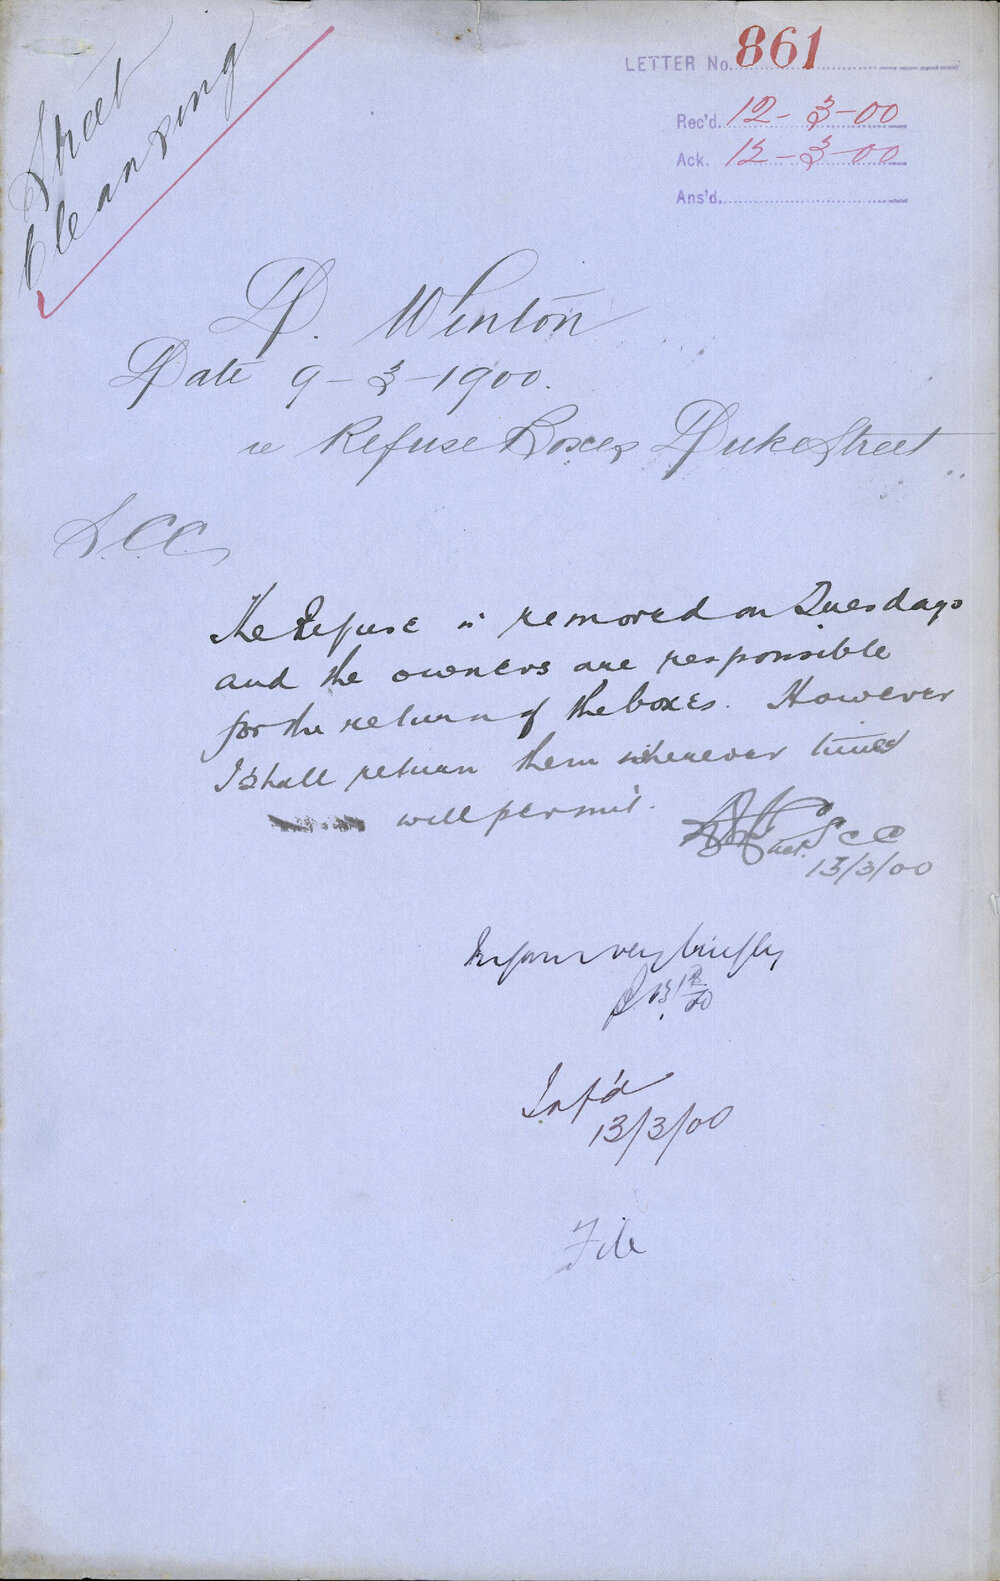 Street
Cleansing
LETTER No. 861
Rec'd. 12-3-00
Ack. 12-3-00
Ans'd.
D. Winton
Date 9-3-1900.
re Refuse Boxes Duke Street
S.C.C.
The Refuse is removed on Tuesdays
and the owners are responsible
for the return of the boxes. However
I shall return them whenever time
will permit.
S C C
13/3/00
Inform very briefly
Inf'd
13/3/00
File